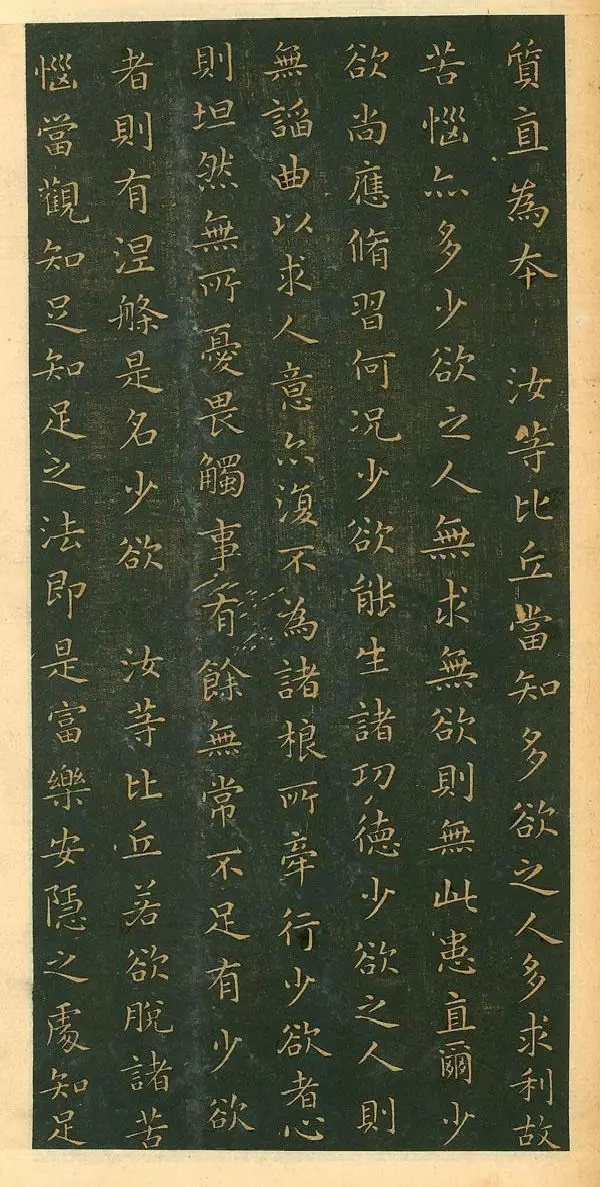 質直為本　汝等比丘當知多欲之人多求利故
苦惱亦多少欲之人無求無欲則無此患直爾少
欲尚應脩習何況少欲能生諸功德少欲之人則
無諂曲以求人意亦復不為諸根所牽行少欲者心
則坦然無所憂畏觸事有餘無常不足有少欲
者則有涅槃是名少欲　汝等比丘若欲脫諸苦
惱當觀知足知足之法即是富樂安隱之處知足